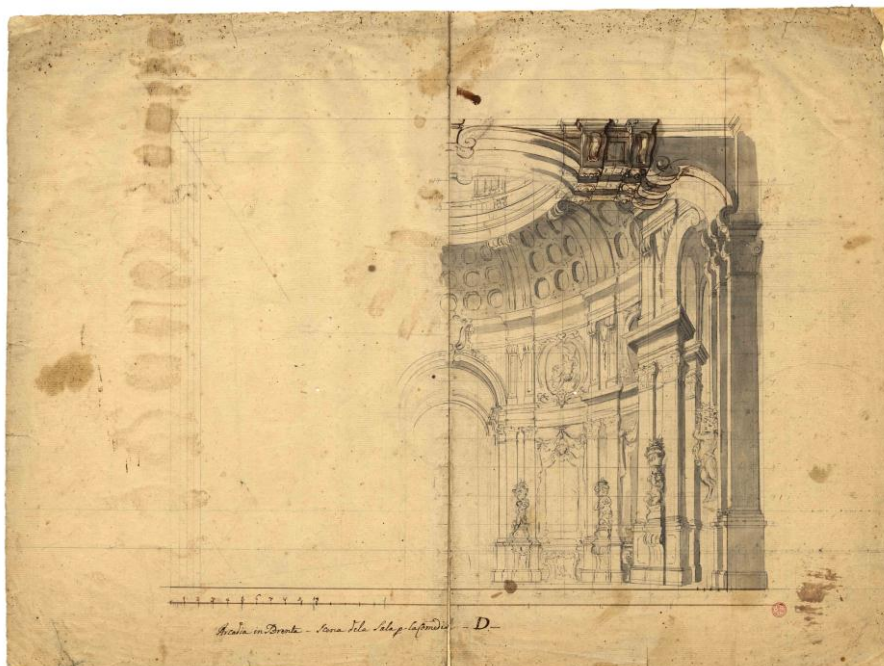 1 2 3 4 5 6 7 8 9 10
Arcadia in Brenta - Scena dela Sala p. la Comedia - D -